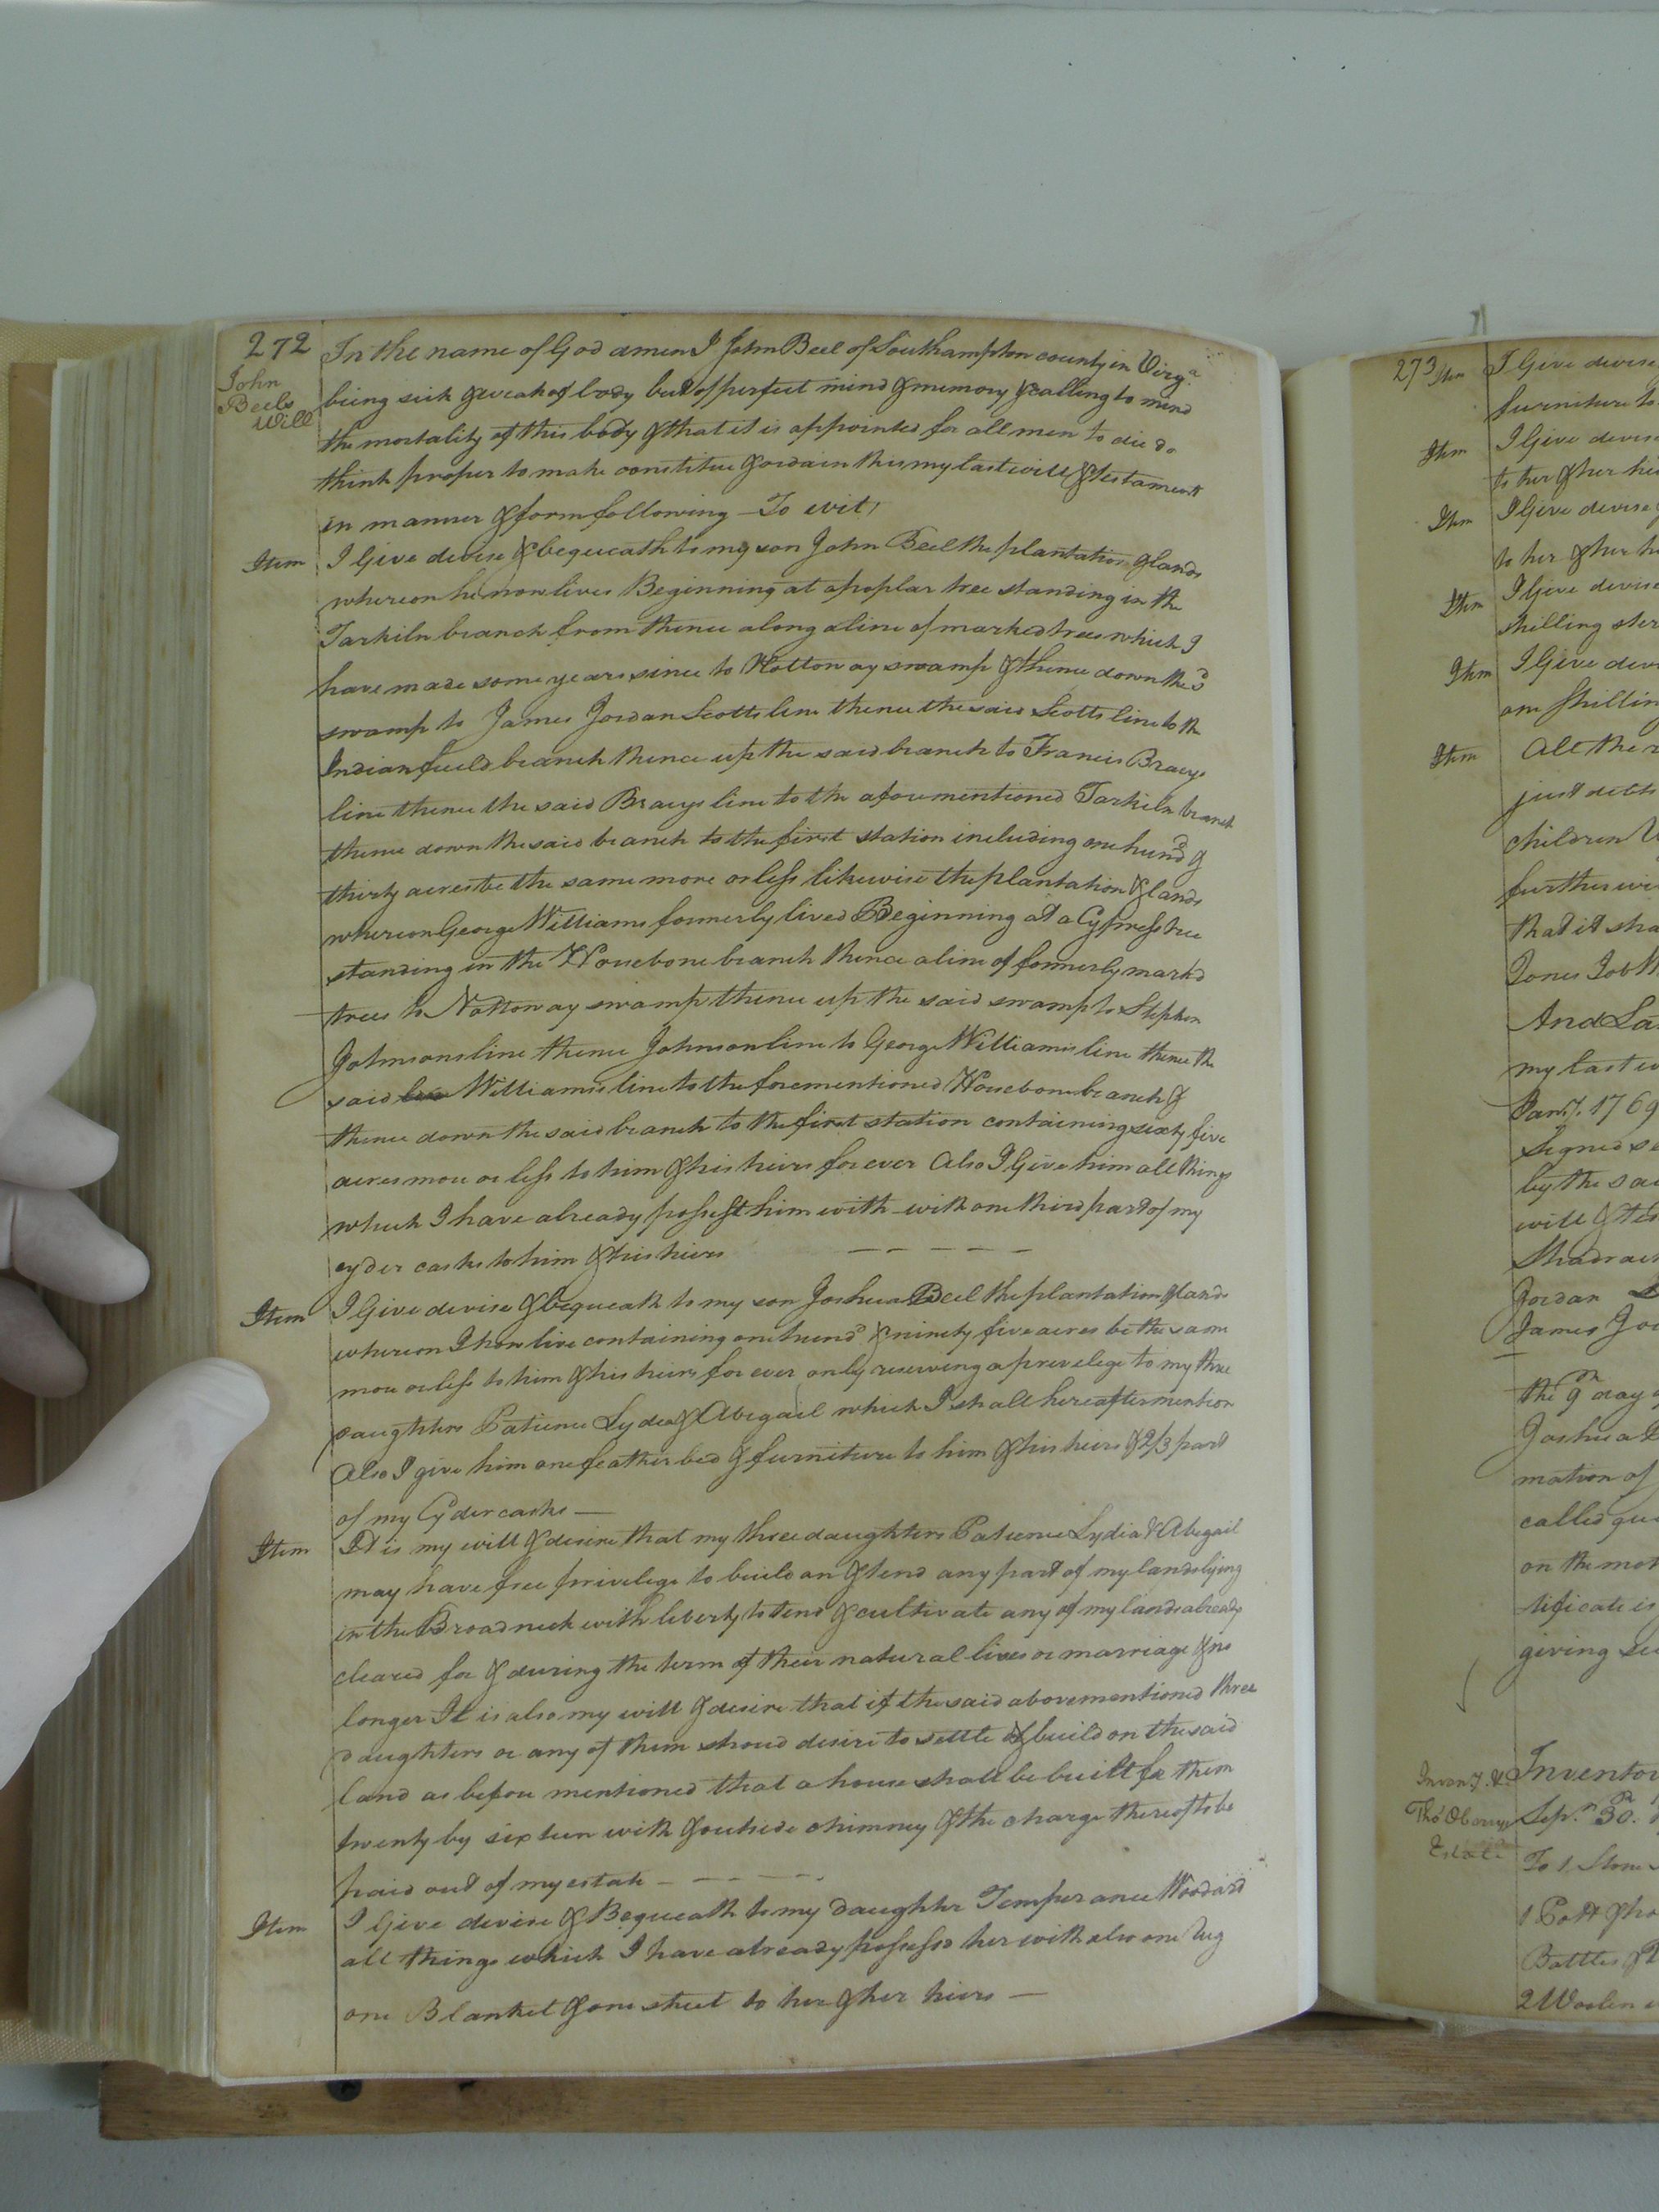 272
John
Beels
Will
In the name of God amen I John Beel of Southampton county in Virg.a
being sick & weak of body but of perfect mind & memory & calling to mind
the mortality of this body & that it is appointed for all men to die do
think proper to make constitue & ordain this my last will & testament
in manner & form following – To wit,
Item I Give devise & bequeath to my son John Beel the plantation & lands
whereon he now lives Beginning at a poplar tree standing in the
Tarkiln branch from thence along a line of marked trees which I
have made some years since to Nottoway swamp & thence down the sd
swamp to James Jordan Scotts line thence the said Scotts line to the
Indian field branch thence up the said branch to Francis Bracys
line thence the said Bracys line to the aforementioned Tarkiln branch
thence down the said branch to the first station including one hund.d &
thirty acres be the same more or less likewise the plantation & lands
whereon George Williams formerly lived Beginning at a Cypress tree
standing in the Horsebone branch thence a line of formerly markd
trees to Nottoway swamp thence up the said swamp to Stephen
Johnsons line thence Johnsons line to George Williams's line thence the
said Williams's line to the forementioned Horsebone branch &
thence down the said branch to the first station containing sixty five
acres more or less to him & his heirs for ever Also I Give him all things
which I have already possest him with – with one third part of my
cyder casks to him & his hiers – – – – –
Item I Give devise & bequeath to my son Joshua Beel the plantation & lands
whereon I now live containing one hund.d & ninety five acres be the same
more or less to him & his heirs for ever only reserving a prevelege to my three
daughters Patience Lydia & Abegail which I shall hereafter mention
Also I give him one feather bed & furniture to him & his heirs & 2/3 part
of my Cyder casks —
Item It is my will & desire that my three daughters Patience Lydia & Abegail
may have free privelege to build on & tend any part of my lands lying
in the Broad neck with liberty to tend & cultivate any of my lands already
cleared for & during the term of their natural lives or marriage & no
longer It is also my will & desire that if the said abovementioned three
daughters or any of them shoud desire to settle & build on the said
land as before mentioned that a house shall be built for them
twenty by sixteen with & outside chimney & the charge thereof to be
paid out of my estate – – – – –
Item I Give devise & Bequeath to my daughter Temperance Woodard
all things which I have already possessd her with also one Rug
one Blanket & one sheet to her & her hiers —
273
Item I Give devise
furniture to
Item I Give devise
to her & her hei
Item I Give devise
to her & her h
Item I Give devise
shilling ster
Item I Give devi
one shillin
Item All the r
just debts
children
further wi
that it sha
Jones Job
And La
my last w
Jan.y 1769
Signed se
by the sai
will & tes
Shadrach
Jordan
James Jo
the 9th day
Joshua B
mation of
called
on the mot
tificate is
giving se
Inven.y &
Tho.s Oberrys
Estate
Inventor
Sep.r 30.
To 1 Stone
1 Pott & ho
Bottles &
2 Woolen